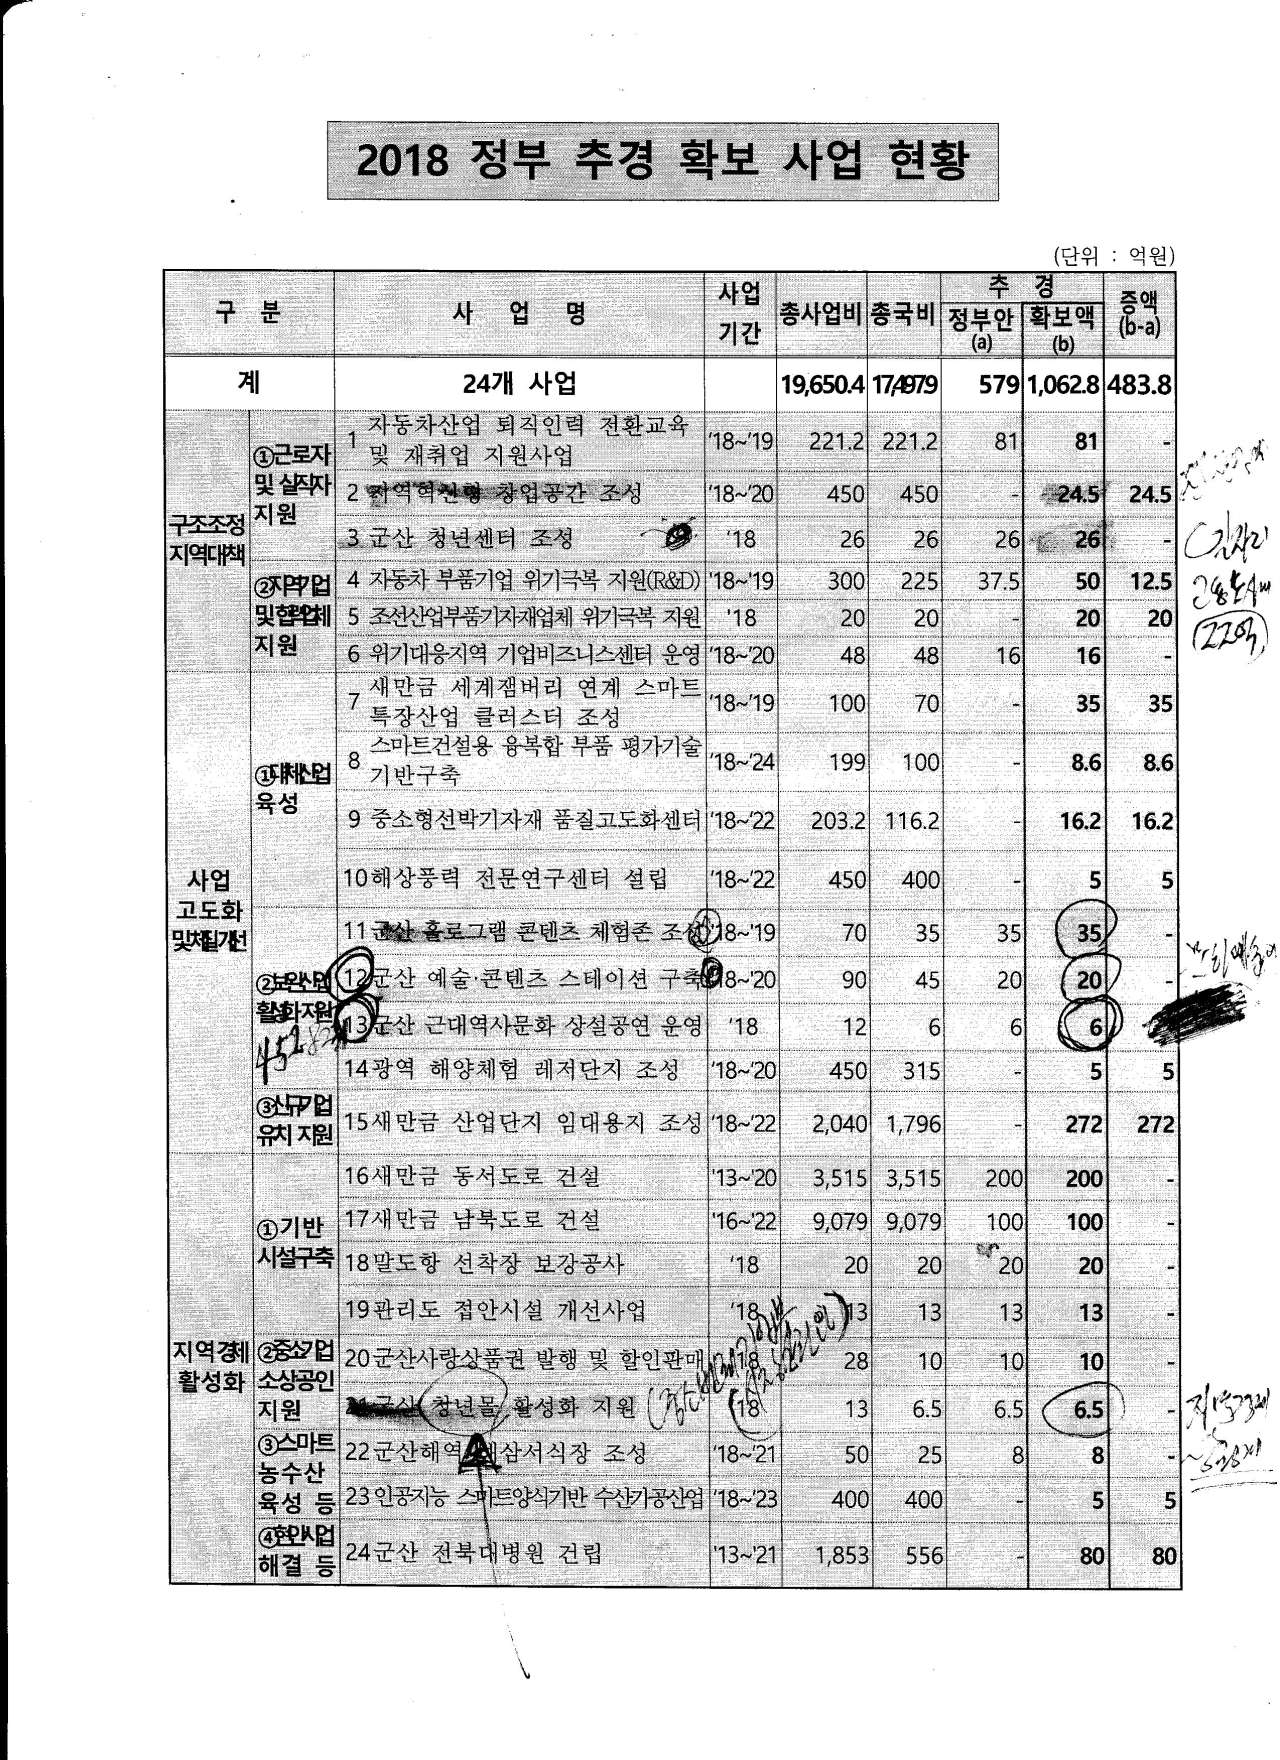 2018 정부 추경 확보 사업 현황
(단위 : 억원)
구 분 사 업 명 사업 기간 총사업비 총국비 추 경 정부안 (a) 확보액 (b) 증액 (b-a)
계 24개 사업 19,650.4 17,497.9 579 1,062.8 483.8
구조조정 지역대책
①근로자 및 실직자 지원
1 자동차산업 퇴직인력 전환교육 및 재취업 지원사업 '18~'19 221.2 221.2 81 81 -
2 지역혁신형 창업공간 조성 '18~'20 450 450 - 24.5 24.5
3 군산 청년센터 조성 '18 26 26 26 26 -
②지역기업 및 협력업체 지원
4 자동차 부품기업 위기극복 지원(R&D) '18~'19 300 225 37.5 50 12.5
5 조선산업부품기자재업체 위기극복 지원 '18 20 20 - 20 20
6 위기대응지역 기업비즈니스센터 운영 '18~'20 48 48 16 16 -
사업 고도화 및체질개선
①대체산업 육성
7 새만금 세계잼버리 연계 스마트 특장산업 클러스터 조성 '18~'19 100 70 - 35 35
8 스마트건설용 융복합 부품 평가기술 기반구축 '18~'24 199 100 - 8.6 8.6
9 중소형선박기자재 품질고도화센터 '18~'22 203.2 116.2 - 16.2 16.2
10 해상풍력 전문연구센터 설립 '18~'22 450 400 - 5 5
②보완산업 활성화 지원
11 군산 홀로그램 콘텐츠 체험존 조성 '18~'19 70 35 35 35 -
12 군산 예술·콘텐츠 스테이션 구축 '18~'20 90 45 20 20 -
13 군산 근대역사문화 상설공연 운영 '18 12 6 6 6 -
14 광역 해양체험 레저단지 조성 '18~'20 450 315 - 5 5
③신규기업 유치 지원
15 새만금 산업단지 임대용지 조성 '18~'22 2,040 1,796 - 272 272
지역경제 활성화
①기반 시설구축
16 새만금 동서도로 건설 '13~'20 3,515 3,515 200 200 -
17 새만금 남북도로 건설 '16~'22 9,079 9,079 100 100 -
18 말도항 선착장 보강공사 '18 20 20 20 20 -
19 관리도 접안시설 개선사업 '18 13 13 13 13 -
②중소기업 소상공인 지원
20 군산사랑상품권 발행 및 할인판매 '18 28 10 10 10 -
21 군산 청년몰 활성화 지원 '18 13 6.5 6.5 6.5 -
③스마트 농수산 육성 등
22 군산해역 해삼서식장 조성 '18~'21 50 25 8 8 -
23 인공지능 스마트양식기반 수산가공산업 '18~'23 400 400 - 5 5
④현안사업 해결 등
24 군산 전북대병원 건립 '13~'21 1,853 556 - 80 80
(22억)